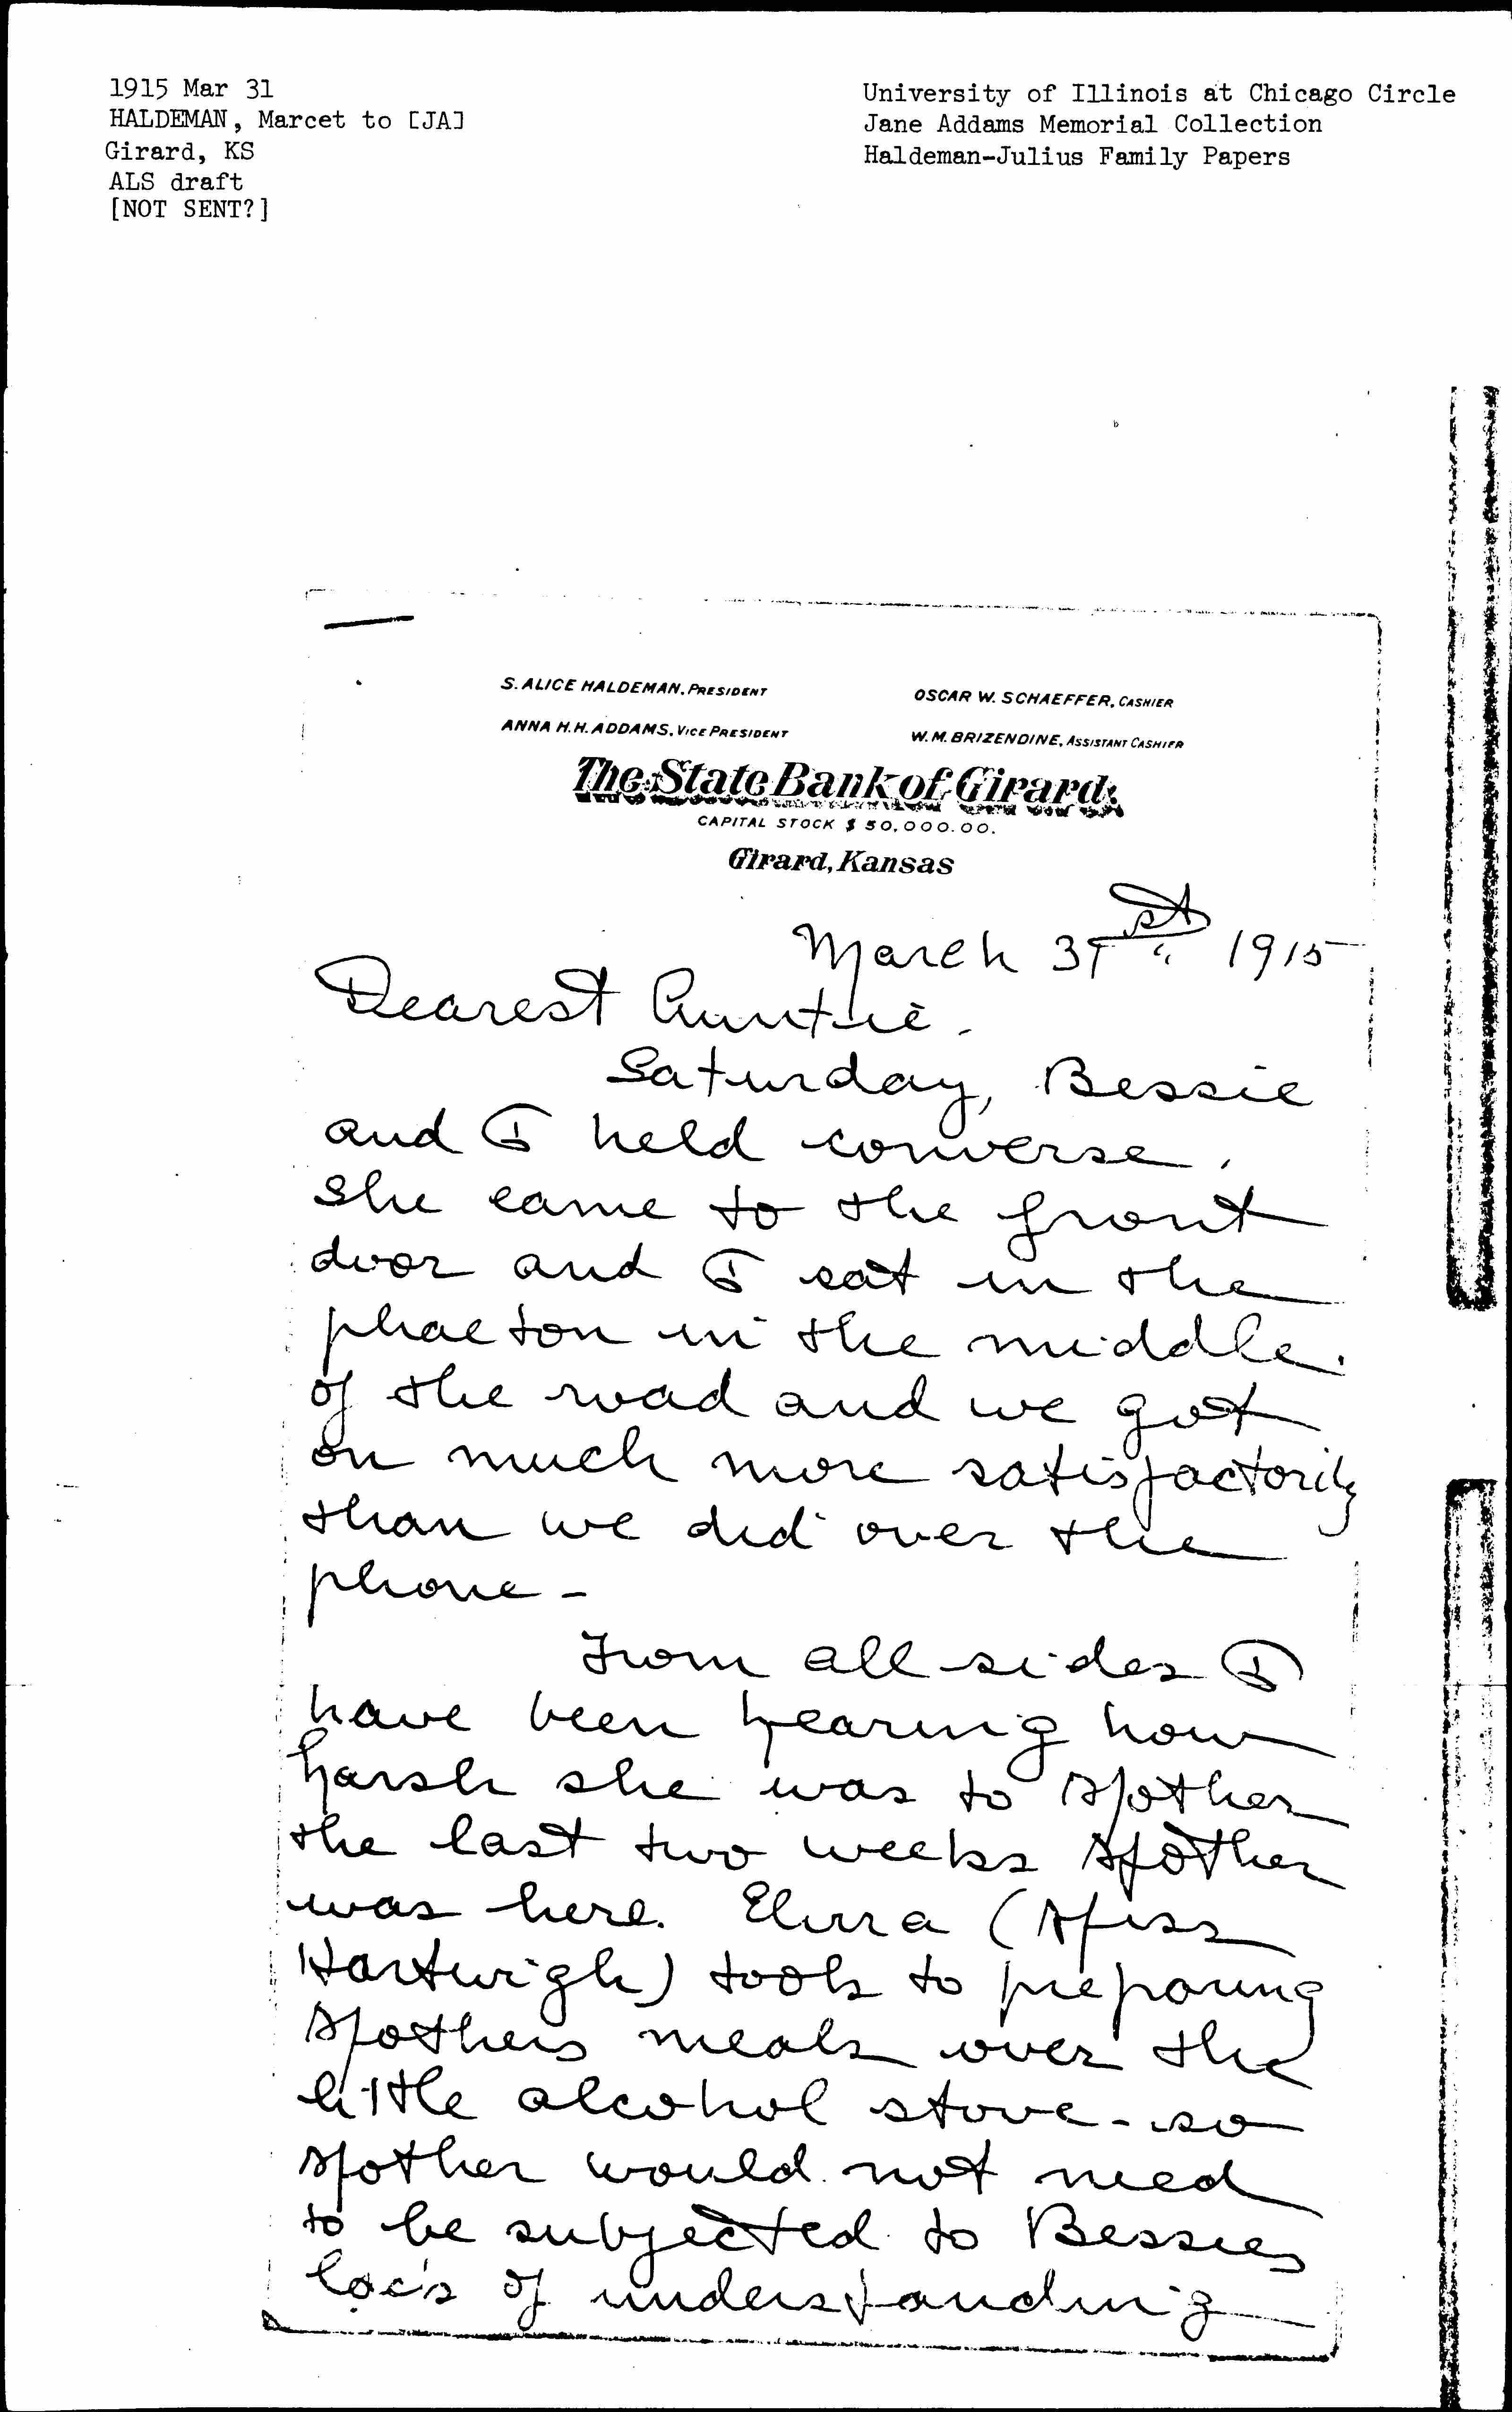 1915 Mar 31
HALDEMAN, Marcet to [JA]
Girard, KS
ALS draft
[NOT SENT?]
University of Illinois at Chicago Circle
Jane Addams Memorial Collection
Haldeman-Julius Family Papers
S. ALICE HALDEMAN, PRESIDENT
ANNA H.H. ADDAMS, VICE PRESIDENT
OSCAR W. SCHAEFFER, CASHIER
W. M. BRIZENDINE, ASSISTANT CASHIER
The State Bank of Girard
CAPITAL STOCK $50,000.00.
Girard, Kansas
March 31st 1915
Dearest Auntie.
Saturday, Bessie
and I held converse.
She came to the front
door and I sat in the
phaeton in the middle
of the road and we got
on much more satisfactorily
than we did over the
phone -
From all sides I
have been hearing how
harsh she was to Mother
the last two weeks Mother
was here. Elma (Miss
Hartwigh) took to preparing
Mothers meals over the
little alcohol stove - so
Mother would not need
to be subjected to Bessies
lack of understanding